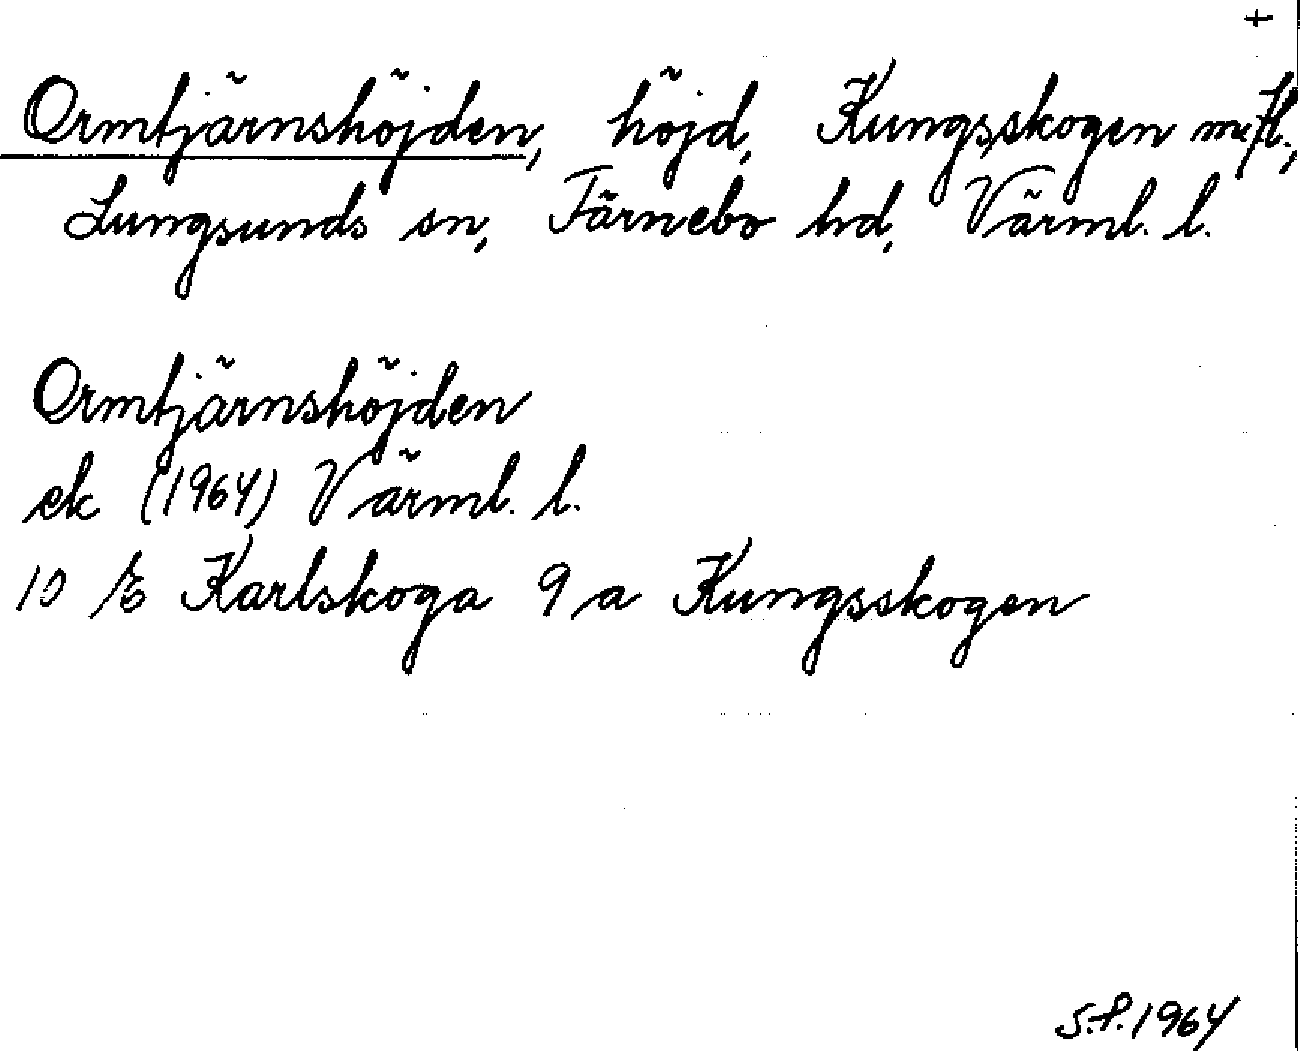 t
Ormtjärnshöjden, höjd, Kungsskogen m.fl.,
Lungsunds sn, Färnebo hd, Värml. l.
Ormtjärnshöjden
ek (1964) Värml. l.
10 E Karlskoga 9 a Kungsskogen
S.P. 1964